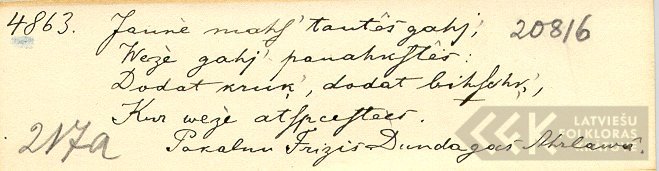 4863. Jaunè mahs' tautês gahj', 20816
Wezè gahj' panahkstês:
Dodat kruķ', dodat bihschķ',
Kur wezè atspeestees.
217a
Pakalnu Frizis Dundagas Ahrlawā.
LATVIEŠU
FOLKLORAS